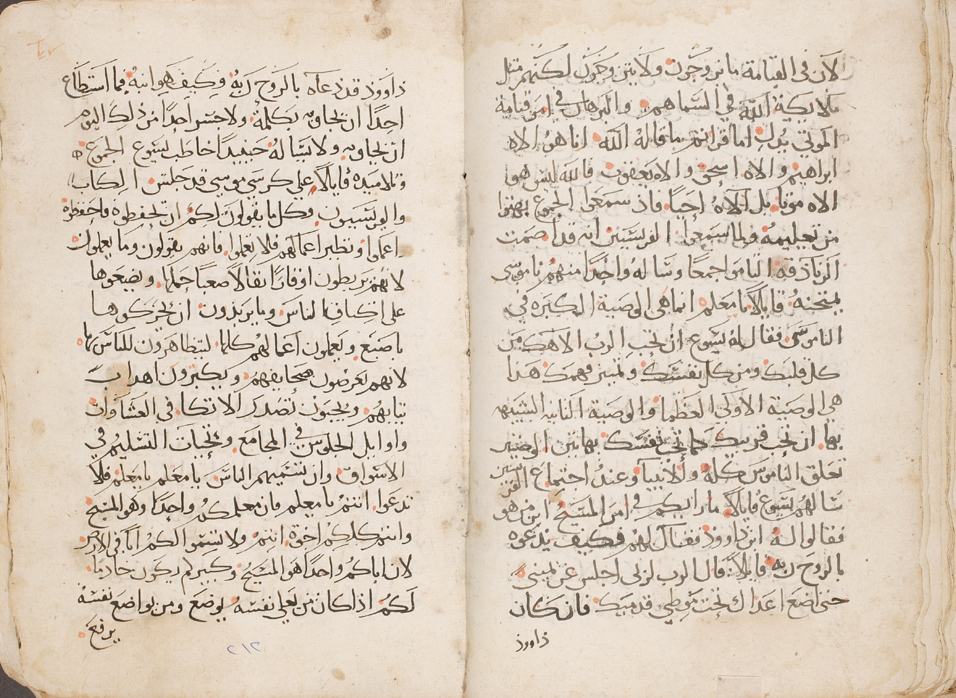 لان في القيامة ما يزوجون ولا يتزوجون لكنهم مثل
ملايكة الله في السماهم والبرهان في امر قيامة
الموتي بدل اما قراتم ما قاله الله انا هو الاه
ابراهيم والاه اسحق والاه يعقوب فالله ليس هوا
الاه موتا بل الاه احيا فاذ سمعوا الجموع بهتوا
من تعليمه ولما سمعوا الفريسيين انه قد اصمت
الزنادقه التامو اجمعا وساله واحدا منهم ناموسي
يمتحنه قايلا يا معلم ايما هي الوصية الكبيره في
الناموس فقال له يسوع ان تحب الرب الاهك من
كل قلبك ومن كل نفسك وتميز فهمك هذا
هي الوصية الاولي العظما والوصية الثانيه الشبيهه
بها ان تحب قريبك كما تحب نفسك بهاتين الوصيتين
تعلق الناموس كله والانبيا وعند اجتماع الفريسيين
سالهم يسوع قايلا ما رايكم في امر المسيح ابن من هو
فقالوا له ابن داوود فقال لهم فكيف يدعوه
بالروح ربه قايلا قال الرب لربي اجلس عن يميني
حتي اضع اعداك تحت موطي قدميك فان كان
داوود
داوود قد دعاه بالروح ربه وكيف هو ابنه فما استطاع
احدا ان يجاوبه بكلمة ولا جسر احدا من ذلك اليوم
ان يجاوبه ولا يساله حينيدا خاطب يسوع الجموع
وتلاميده قايلا علي كرسي موسي قد جلس الكتاب
والفريسيون وكل ما يقولون لكم ان تحفظوه فاحفظوه
اعملوا ونظير اعمالهم فلا تعملوا فانهم يقولون وما يعملون
لانهم يربطون اوقارا ثقالا صعبا حملها ويضعوها
علي اكتاف الناس وما يريدون ان يحركوها
باصبع ويعملون اعمالهم كلها ليتظاهرون للناس بها
لانهم يعرضون صحايفهم ويكبرون اهداب
ثيابهم ويحبون تصدر الاتكا في العشاوات
واوايل الجلوس في المجامع وتحيات التسليم في
الاسواق وان تسميهم الناس يا معلم يا معلم فلا
تدعوا انتم يا معلم فان معلمكم واحدا وهو المسيح
وانتم كلكم اخوه انتم ولا تسموا لكم ابا في الارض
لان اباكم واحدا هو المسيح وكبيركم يكون خادما
لكم اذا كان من يعلي نفسه يوضع ومن يواضع نفسه
يرفع
٢١٢